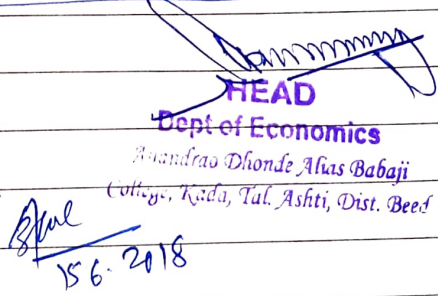 HEAD
Dept of Economics
Anandrao Dhonde Alias Babaji
College, Kada, Tal. Ashti, Dist. Beed
15 6. 2018